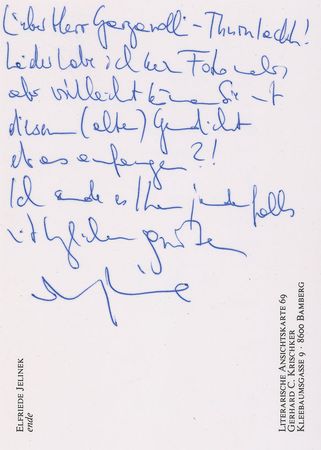 Lieber Herr
Leider habe ich kein Foto mehr,
aber vielleicht können Sie mit
diesem (alten) Gedicht
etwas anfangen?!
Ich sende es Ihnen jedenfalls
mit herzlichen Grüßen
ELFRIEDE JELINEK
ende
LITERARISCHE ANSICHTSKARTE 69
GERHARD C. KRISCHKER
KLEEBAUMSGASSE 9 · 8600 BAMBERG